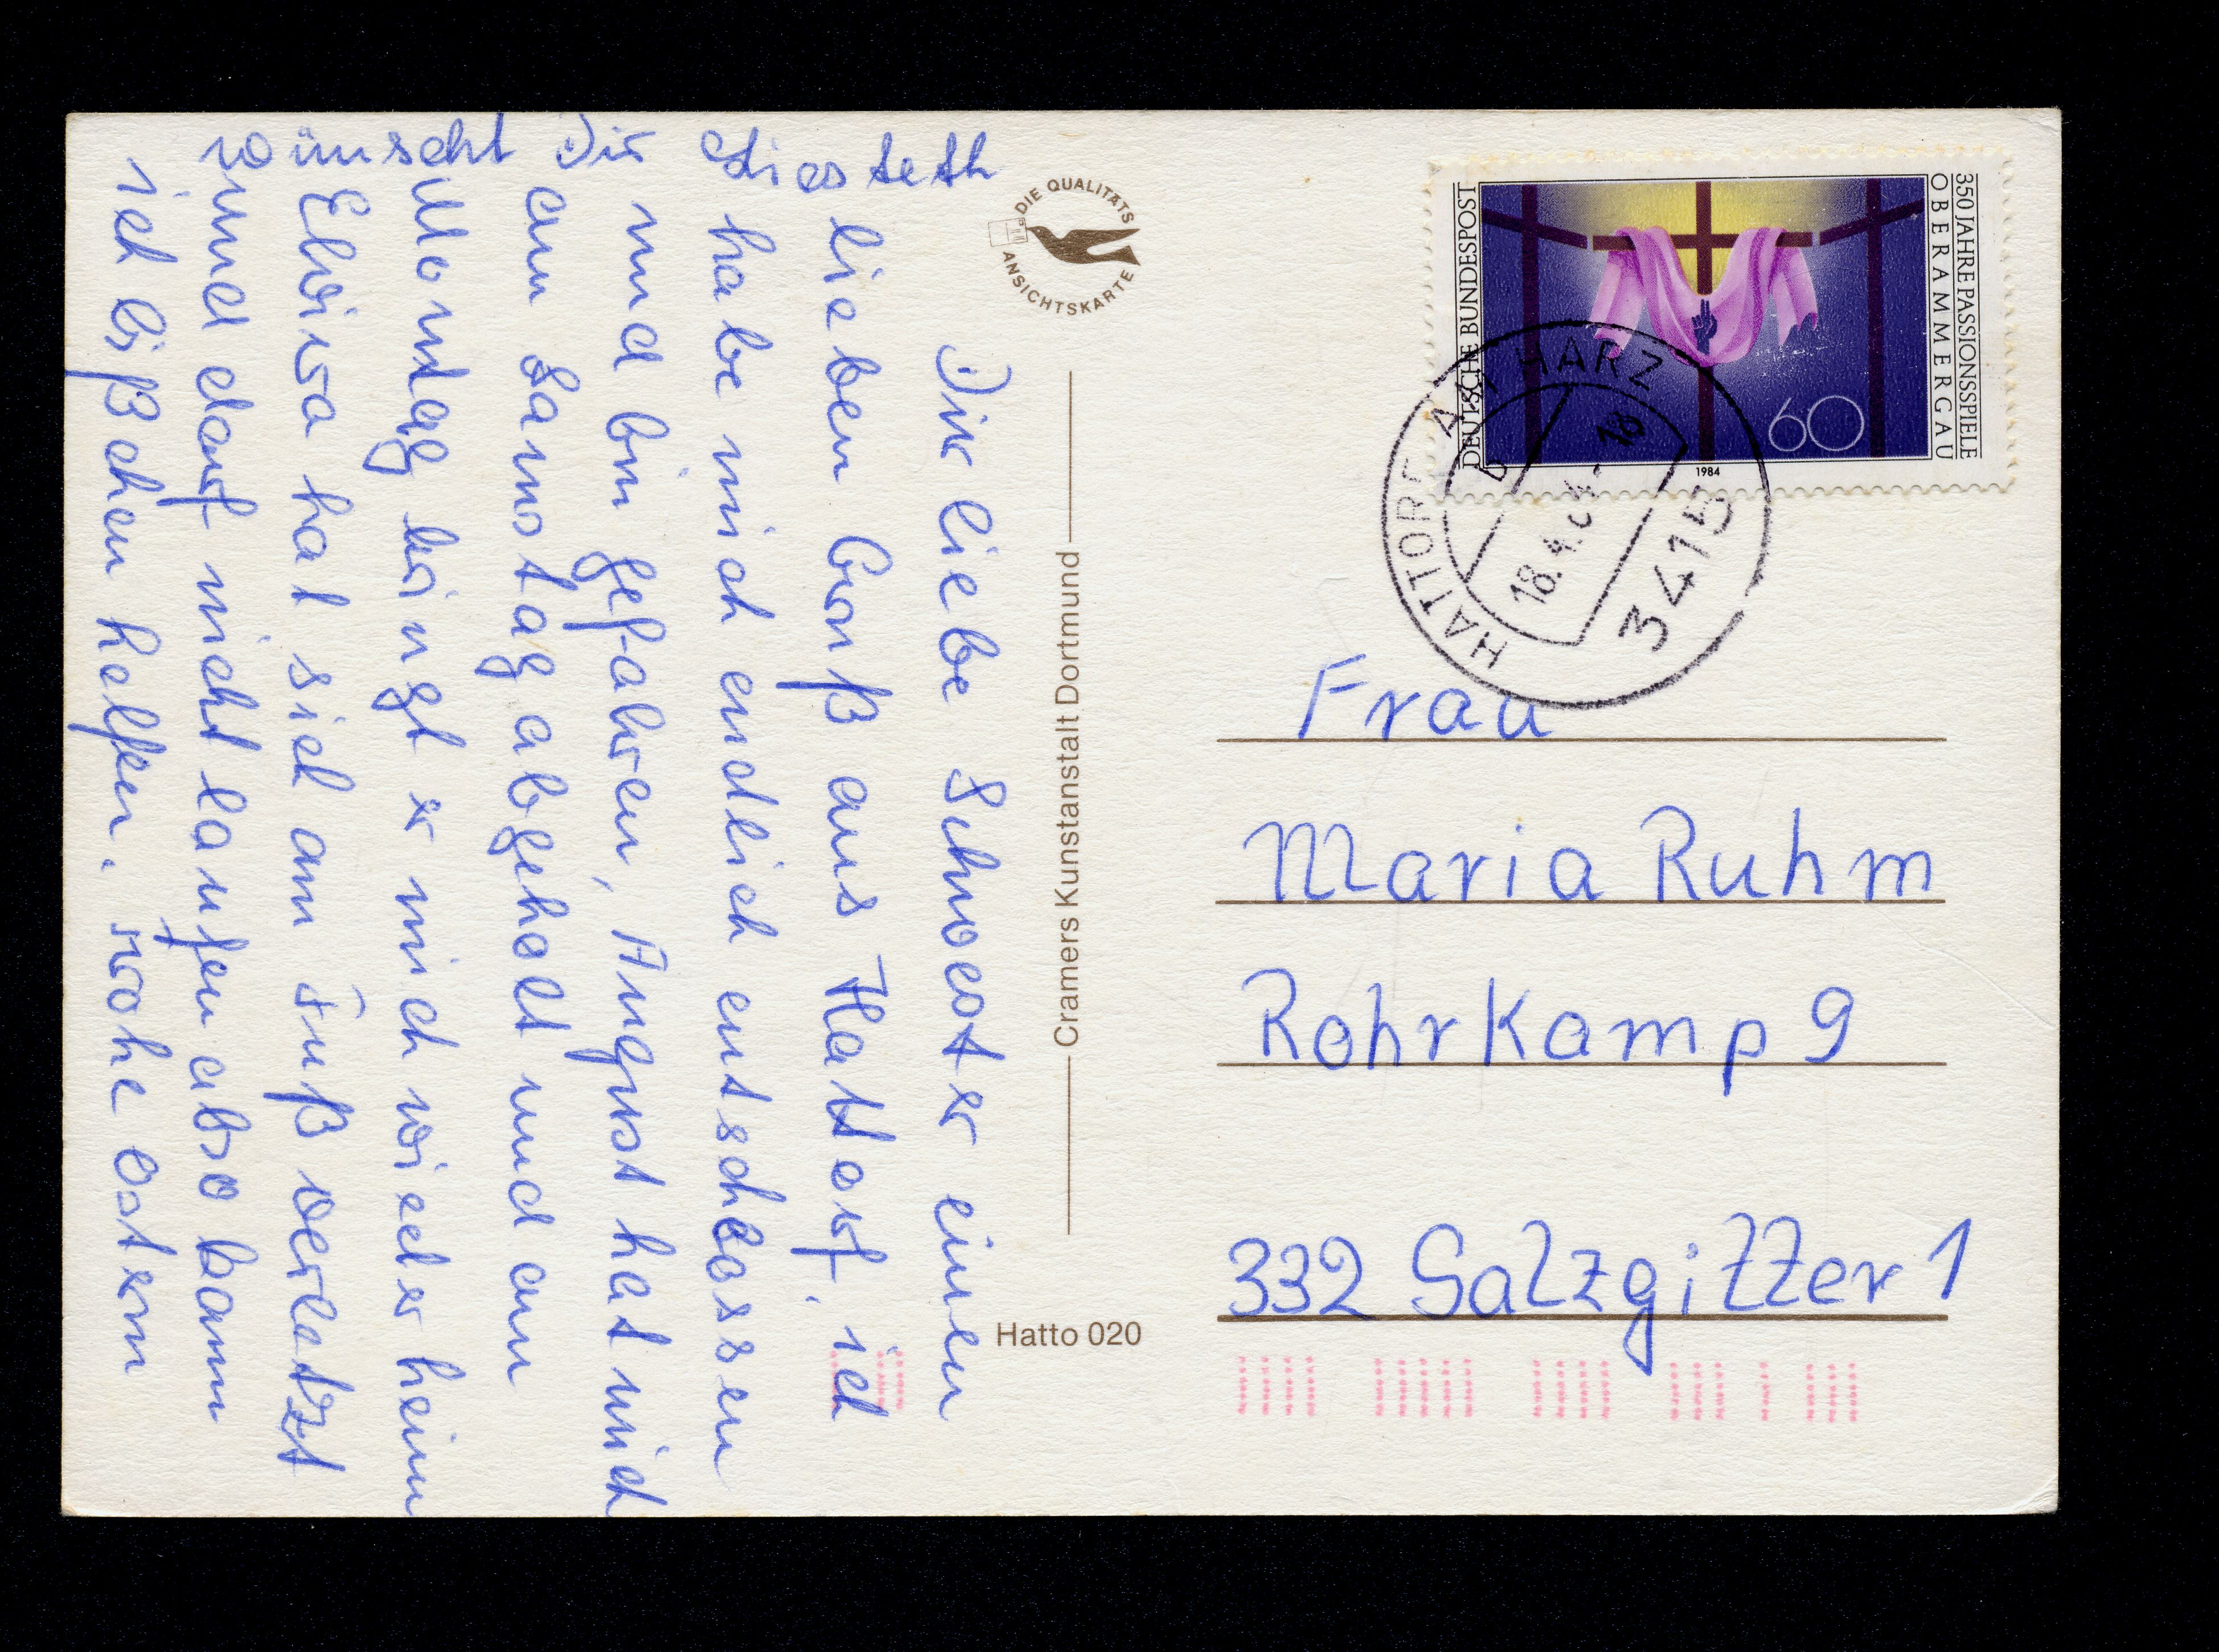 Dir liebe Schwester einen
lieben Gruß aus Hattorf. ich
habe mich endlich entschlossen
und bin gefahren, August hat mich
am Samstag abgeholt und am
Montag bringt er mich wieder heim
Elvira hat sich am Fuß verletzt
und darf nicht laufen also kann
ich bißchen helfen. Frohe Ostern
wünscht Dir
DIE QUALITÄTS
ANSICHTSKARTE
Cramers Kunstanstalt Dortmund
Hatto 020
DEUTSCHE BUNDESPOST
350 JAHRE PASSIONSSPIELE
OBERAMMERGAU
60
1984
HATTORF AM HARZ
b
18.4. - 18
3415
Frau
Maria Ruhm
Rohrkamp 9
332 Salzgitter 1